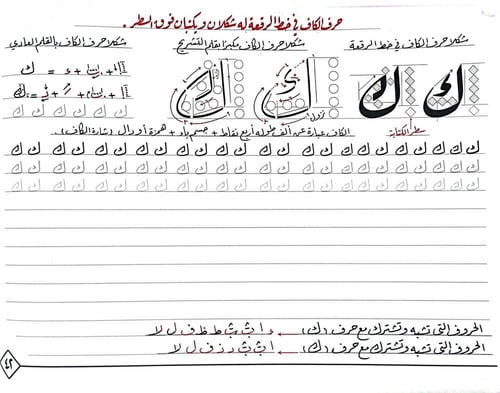 حرف الكاف في خط الرقعة له شكلان ويكتبان فوق السطر.
شكلا حرف الكاف في خط الرقعة
شكلا حرف الكاف مكبرًا بقلم التشريح
شكلا حرف الكاف بالقلم العادي
نزول
سطر الكتابة
الكاف عبارة عن ألف طوله أربع نقاط + جسم باء + همزة أو دال (شارة الكاف).
ك ك ك ك ك ك ك ك ك ك ك ك ك ك ك ك ك ك
ك ك ك ك ك ك ك ك ك ك ك ك ك ك ك ك ك ك
ك ك ك ك ك ك ك ك ك ك ك ك ك ك ك ك ك ك
الحروف التي تشبه وتشترك مع حرف (ك) ← ء ا ب ث ط ظ ف ل لا
الحروف التي تشبه وتشترك مع حرف (ك) ← ا ب ث د ذ ف ل لا
٤٢